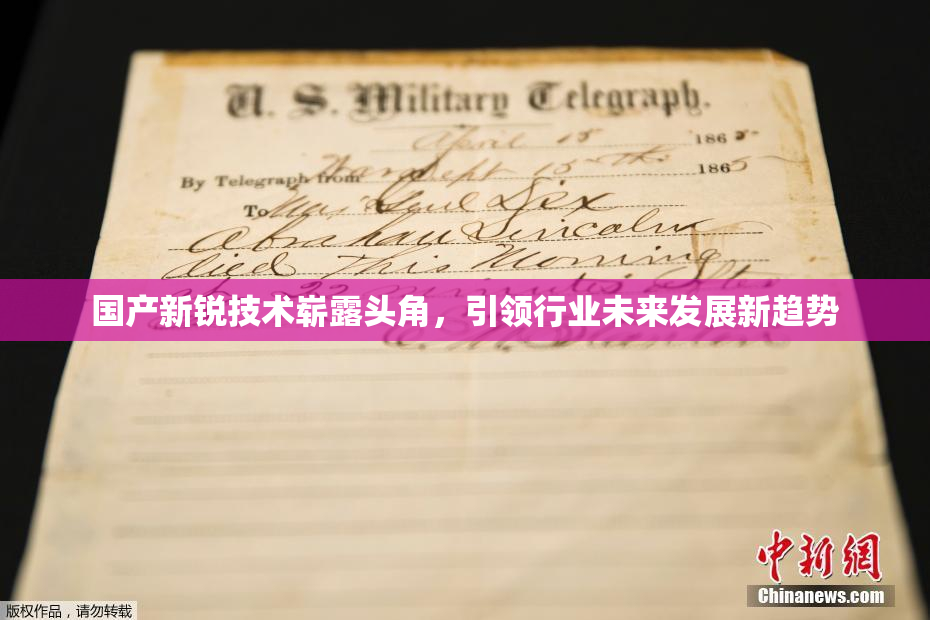 U. S. Military Telegraph.
April 15 1865
By Telegraph from War Dept 15th 1865
To Maj Genl Dix
Abraham Lincoln
died This Morning
22 minutes after
国产新锐技术崭露头角，引领行业未来发展新趋势
E. M. Stanton
中新网
Chinanews.com
版权作品，请勿转载